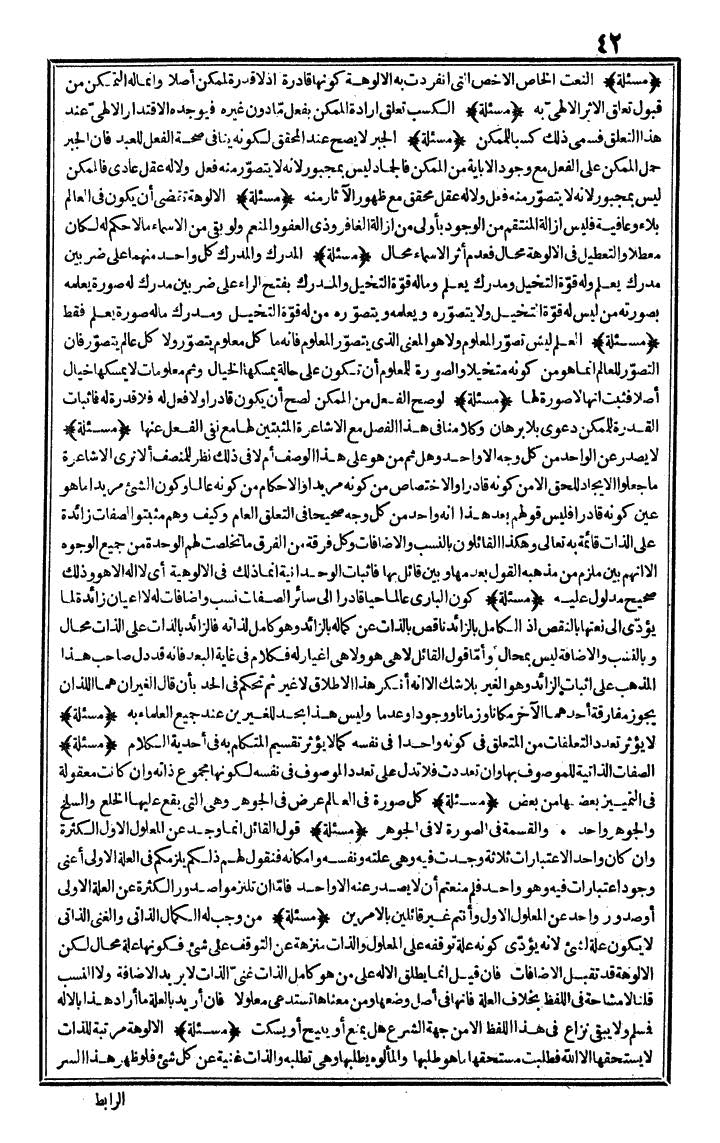 ٤٢
﴿مسئلة﴾ النعت الخاص الاخص التى انفردت به الالوهة كونها قادرة اذ لا قدرة لممكن أصلا وانما له التمكن من
قبول تعلق الاثر الالهىّ به ﴿مسئلة﴾ الكسب تعلق ارادة الممكن بفعل مّا دون غيره فيوجده الاقتدار الالهىّ عند
هذا التعلق فسمى ذلك كسبا للممكن ﴿مسئلة﴾ الجبر لا يصح عند المحقق لكونه ينافى صحة الفعل للعبد فان الجبر
حمل الممكن على الفعل مع وجود الاباية من الممكن فالجماد ليس بمجبور لانه لا يتصوّر منه فعل ولا له عقل عادى فالممكن
ليس بمجبور لانه لا يتصوّر منه فعل ولا له عقل محقق مع ظهور الآثار منه ﴿مسئلة﴾ الالوهة تقضى أن يكون فى العالم
بلاء وعافية فليس ازالة المنتقم من الوجود بأولى من ازالة الغافر وذى العفو والمنعم ولو بقى من الاسماء مالا حكم له لكان
معطلا والتعطيل فى الالوهة محال فعدم أثر الاسماء محال ﴿مسئلة﴾ المدرك والمدرك كل واحد منهما على ضربين
مدرك يعلم وله قوّة التخيل ومدرك يعلم وماله قوّة التخيل والمدرك بفتح الراء على ضربين مدرك له صورة يعلمه
بصورته من ليس له قوّة التخيل ولا يتصوّره ويعلمه ويتصوّره من له قوّة التخيل ومدرك ماله صورة يعلم فقط
﴿مسئلة﴾ العلم ليس تصوّر المعلوم ولا هو المعنى الذى يتصوّر المعلوم فانه ما كل معلوم يتصوّر ولا كل عالم يتصوّر فان
التصوّر للعالم انما هو من كونه متخيلا والصورة للمعلوم أن تكون على حالة يمسكها الخيال وثم معلومات لا يمسكها خيال
أصلا فثبت انها لا صورة لها ﴿مسئلة﴾ لو صح الفعل من الممكن لصح أن يكون قادرا ولا فعل له فلا قدرة له فاثبات
القدرة للممكن دعوى بلا برهان وكلامنا فى هذا الفصل مع الاشاعرة المثبتين لها مع نفى الفعل عنها ﴿مسئلة﴾
لا يصدر عن الواحد من كل وجه الا واحد وهل ثم من هو على هذا الوصف أم لا فى ذلك نظر للمنصف ألا ترى الاشاعرة
ما جعلوا الايجاد للحق الا من كونه قادرا والاختصاص من كونه مريدا والاحكام من كونه عالما وكون الشئ مريدا ما هو
عين كونه قادرا فليس قولهم بعد هذا انه واحد من كل وجه صحيحا فى التعلق العام وكيف وهم مثبتو الصفات زائدة
على الذات قائمة به تعالى وهكذا القائلون بالنسب والاضافات وكل فرقة من الفرق ما تخلصت لهم الوحدة من جميع الوجوه
الا انهم بين ملزم من مذهبه القول بعدمها وبين قائل بها فاثبات الوحدانية انما ذلك فى الالوهية أى لا اله الا هو وذلك
صحيح مدلول عليه ﴿مسئلة﴾ كون البارى عالما حيا قادرا الى سائر الصفات نسب واضافات له لا اعيان زائدة لما
يؤدّى الى نعتها بالنقص اذ الكامل بالزائد ناقص بالذات عن كماله بالزائد وهو كامل لذاته فالزائد بالذات على الذات محال
وبالنسب والاضافة ليس بمحال وأمّا قول القائل لا هى هو ولا هى اغيار له فكلام فى غاية البعد فانه قد دل صاحب هذا
المذهب على اثبات الزائد وهو الغير بلا شك الا انه أنكر هذا الاطلاق لا غير ثم تحكم فى الحد بأن قال الغيران هما اللذان
يجوز مفارقة أحدهما الآخر مكانا وزمانا ووجودا وعدما وليس هذا بحد للغيرين عند جميع العلماء به ﴿مسئلة﴾
لا يؤثر تعدد التعلقات من المتعلق فى كونه واحدا فى نفسه كما لا يؤثر تقسيم المتكلم به فى أحدية الكلام ﴿مسئلة﴾
الصفات الذاتية للموصوف بها وان تعددت فلا تدل على تعدد الموصوف فى نفسه لكونها مجموع ذاته وان كانت معقولة
فى التمييز بعضها من بعض ﴿مسئلة﴾ كل صورة فى العالم عرض فى الجوهر وهى التى يقع عليها الخلع والسلخ
والجوهر واحد . والقسمة فى الصورة لا فى الجوهر ﴿مسئلة﴾ قول القائل انما وجد عن المعلول الاول الكثرة
وان كان واحد الاعتبارات ثلاثة وجدت فيه وهى علته ونفسه وامكانه فنقول لهم ذلكم يلزمكم فى العلة الاولى أعنى
وجود اعتبارات فيه وهو واحد فلم منعتم أن لا يصدر عنه الا واحد فامّا ان تلتزموا صدور الكثرة عن العلة الاولى
أو صدور واحد عن المعلول الاول وأنتم غير قائلين بالامرين ﴿مسئلة﴾ من وجب له الكمال الذاتى والغنى الذاتى
لا يكون علة لشئ لانه يؤدّى كونه علة توقفه على المعلول والذات منزهة عن التوقف على شئ فكونها علة محال لكن
الالوهة قد تقبل الاضافات فان قيل انما يطلق الاله على من هو كامل الذات غنىّ الذات لا يريد الاضافة ولا النسب
قلنا لا مشاحة فى اللفظ بخلاف العلة فانها فى أصل وضعها ومن معناها تستدعى معلولا فان أريد بالعلة ما أراد هذا بالاله
فسلم ولا يبقى نزاع فى هذا اللفظ الا من جهة الشرع هل يمنع أو يبيح أو يسكت ﴿مسئلة﴾ الالوهة مرتبة للذات
لا يستحقها الا الله فطلبت مستحقها ما هو طلبها والمألوه يطلبها وهى تطلبه والذات غنية عن كل شئ فلو ظهر هذا السر
الرابط